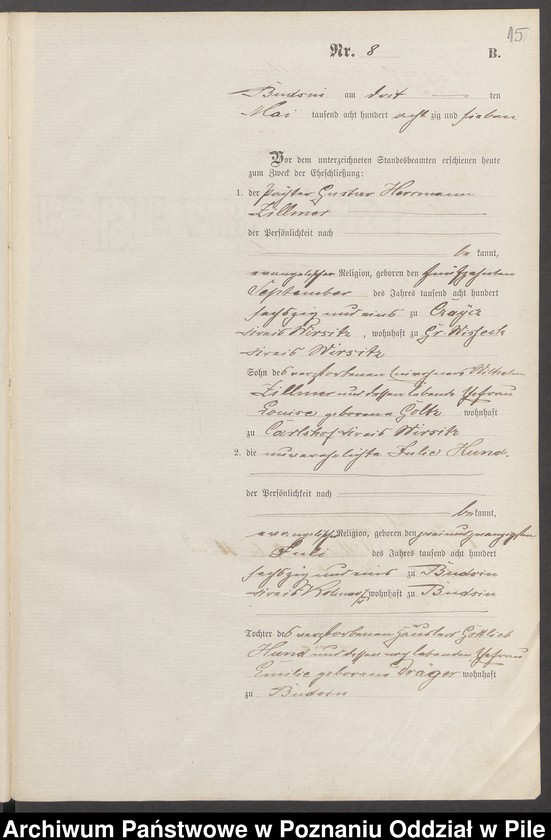 15
Nr. 8 B.
Budsin am drit ten
Mai tausend acht hundert acht zig und sieben
Vor dem unterzeichneten Standesbeamten erschienen heute
zum Zweck der Eheschließung:
1. der Gustav Herrmann
Zillmer
der Persönlichkeit nach
be kannt,
evangelischer Religion, geboren den fünfzehnten
September des Jahres tausend acht hundert
sechszig und eins zu
Kreis Wirsitz, wohnhaft zu Gr. Wissek
Kreis Wirsitz
Sohn des verstorbenen Einwohners Wilhelm
Zillmer und dessen lebende Ehefrau
Louise geborene Göltz wohnhaft
zu Carlshof Kreis Wirsitz
2. die unverehelichte Julie Hund.
der Persönlichkeit nach
be kannt,
evangelischer Religion, geboren den zwei und zwanzigsten
Juli des Jahres tausend acht hundert
sechszig und eins zu Budsin
Kreis Kolmar wohnhaft zu Budsin
Tochter des verstorbenen Häusler Gottlieb
Hund und dessen noch lebenden Ehefrau
Emilie geborene Dräger wohnhaft
zu Budsin
Archiwum Państwowe w Poznaniu Oddział w Pile